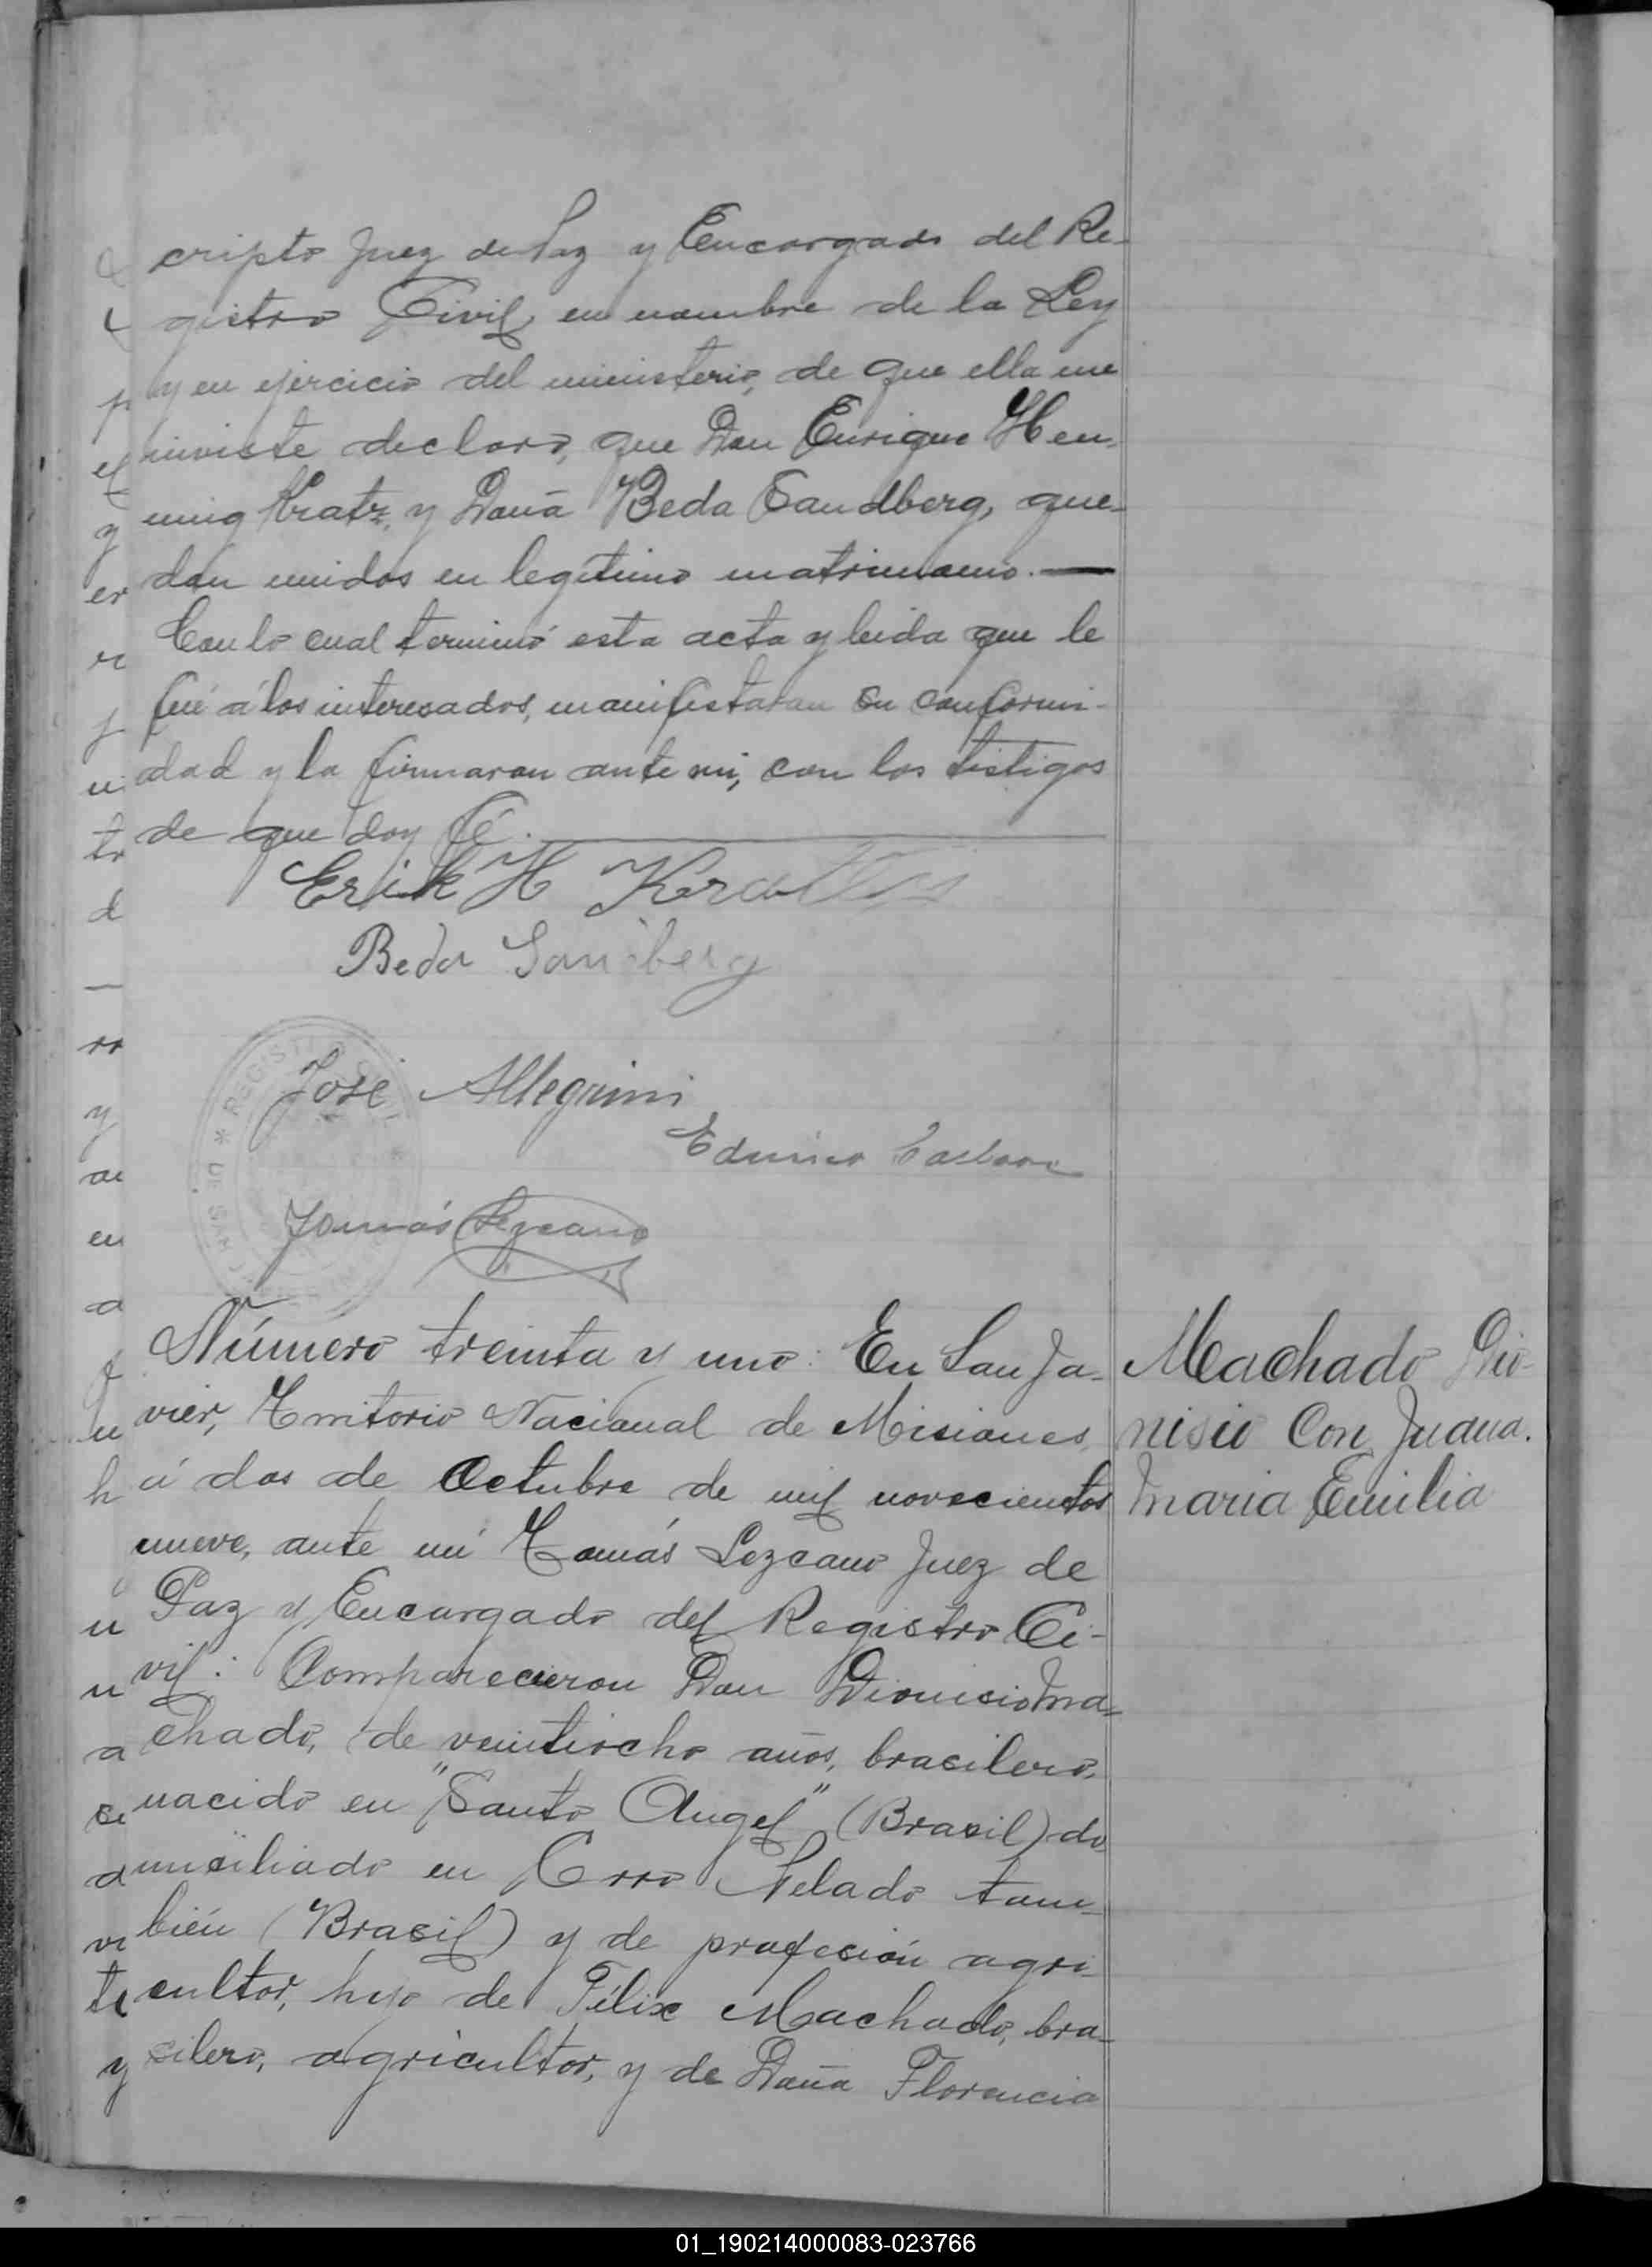 cripto Juez de Paz y Encargado del Re-
gistro Civil, en nombre de la Ley
y en ejercicio del ministerio, de que ella me
inviste declaro, que Don Enrique Hen-
ning Kratz, y Doña Beda Sandberg, que-
dan unidos en legítimo matrimonio.—
Con lo cual terminó esta acta y leida que le
fué á los interesados, manifestaron su conformi-
dad y la firmaron ante mi, con los testigos
de que doy fé.
Erik H
Beda Sandberg
REGISTRO CIVIL
José Allegrini
Tomás Lezcano
Número treinta y uno: En San Ja-
vier, Territorio Nacional de Misiones,
á dos de Octubre de mil novecientos
nueve, ante mi Tomás Lezcano Juez de
Paz y Encargado del Registro Ci-
vil: Comparecieron Don Dionicio Ma-
chado, de veintiocho años, brasilero,
nacido en "Santo Angel" (Brasil) do-
miciliado en Cerro Pelado tam-
bién (Brasil) y de profesión agri-
cultor, hijo de Félix Machado, bra-
silero, agricultor, y de Doña Florencia
Machado Dio-
nisio Con Juana.
Maria Emilia
01_190214000083-023766